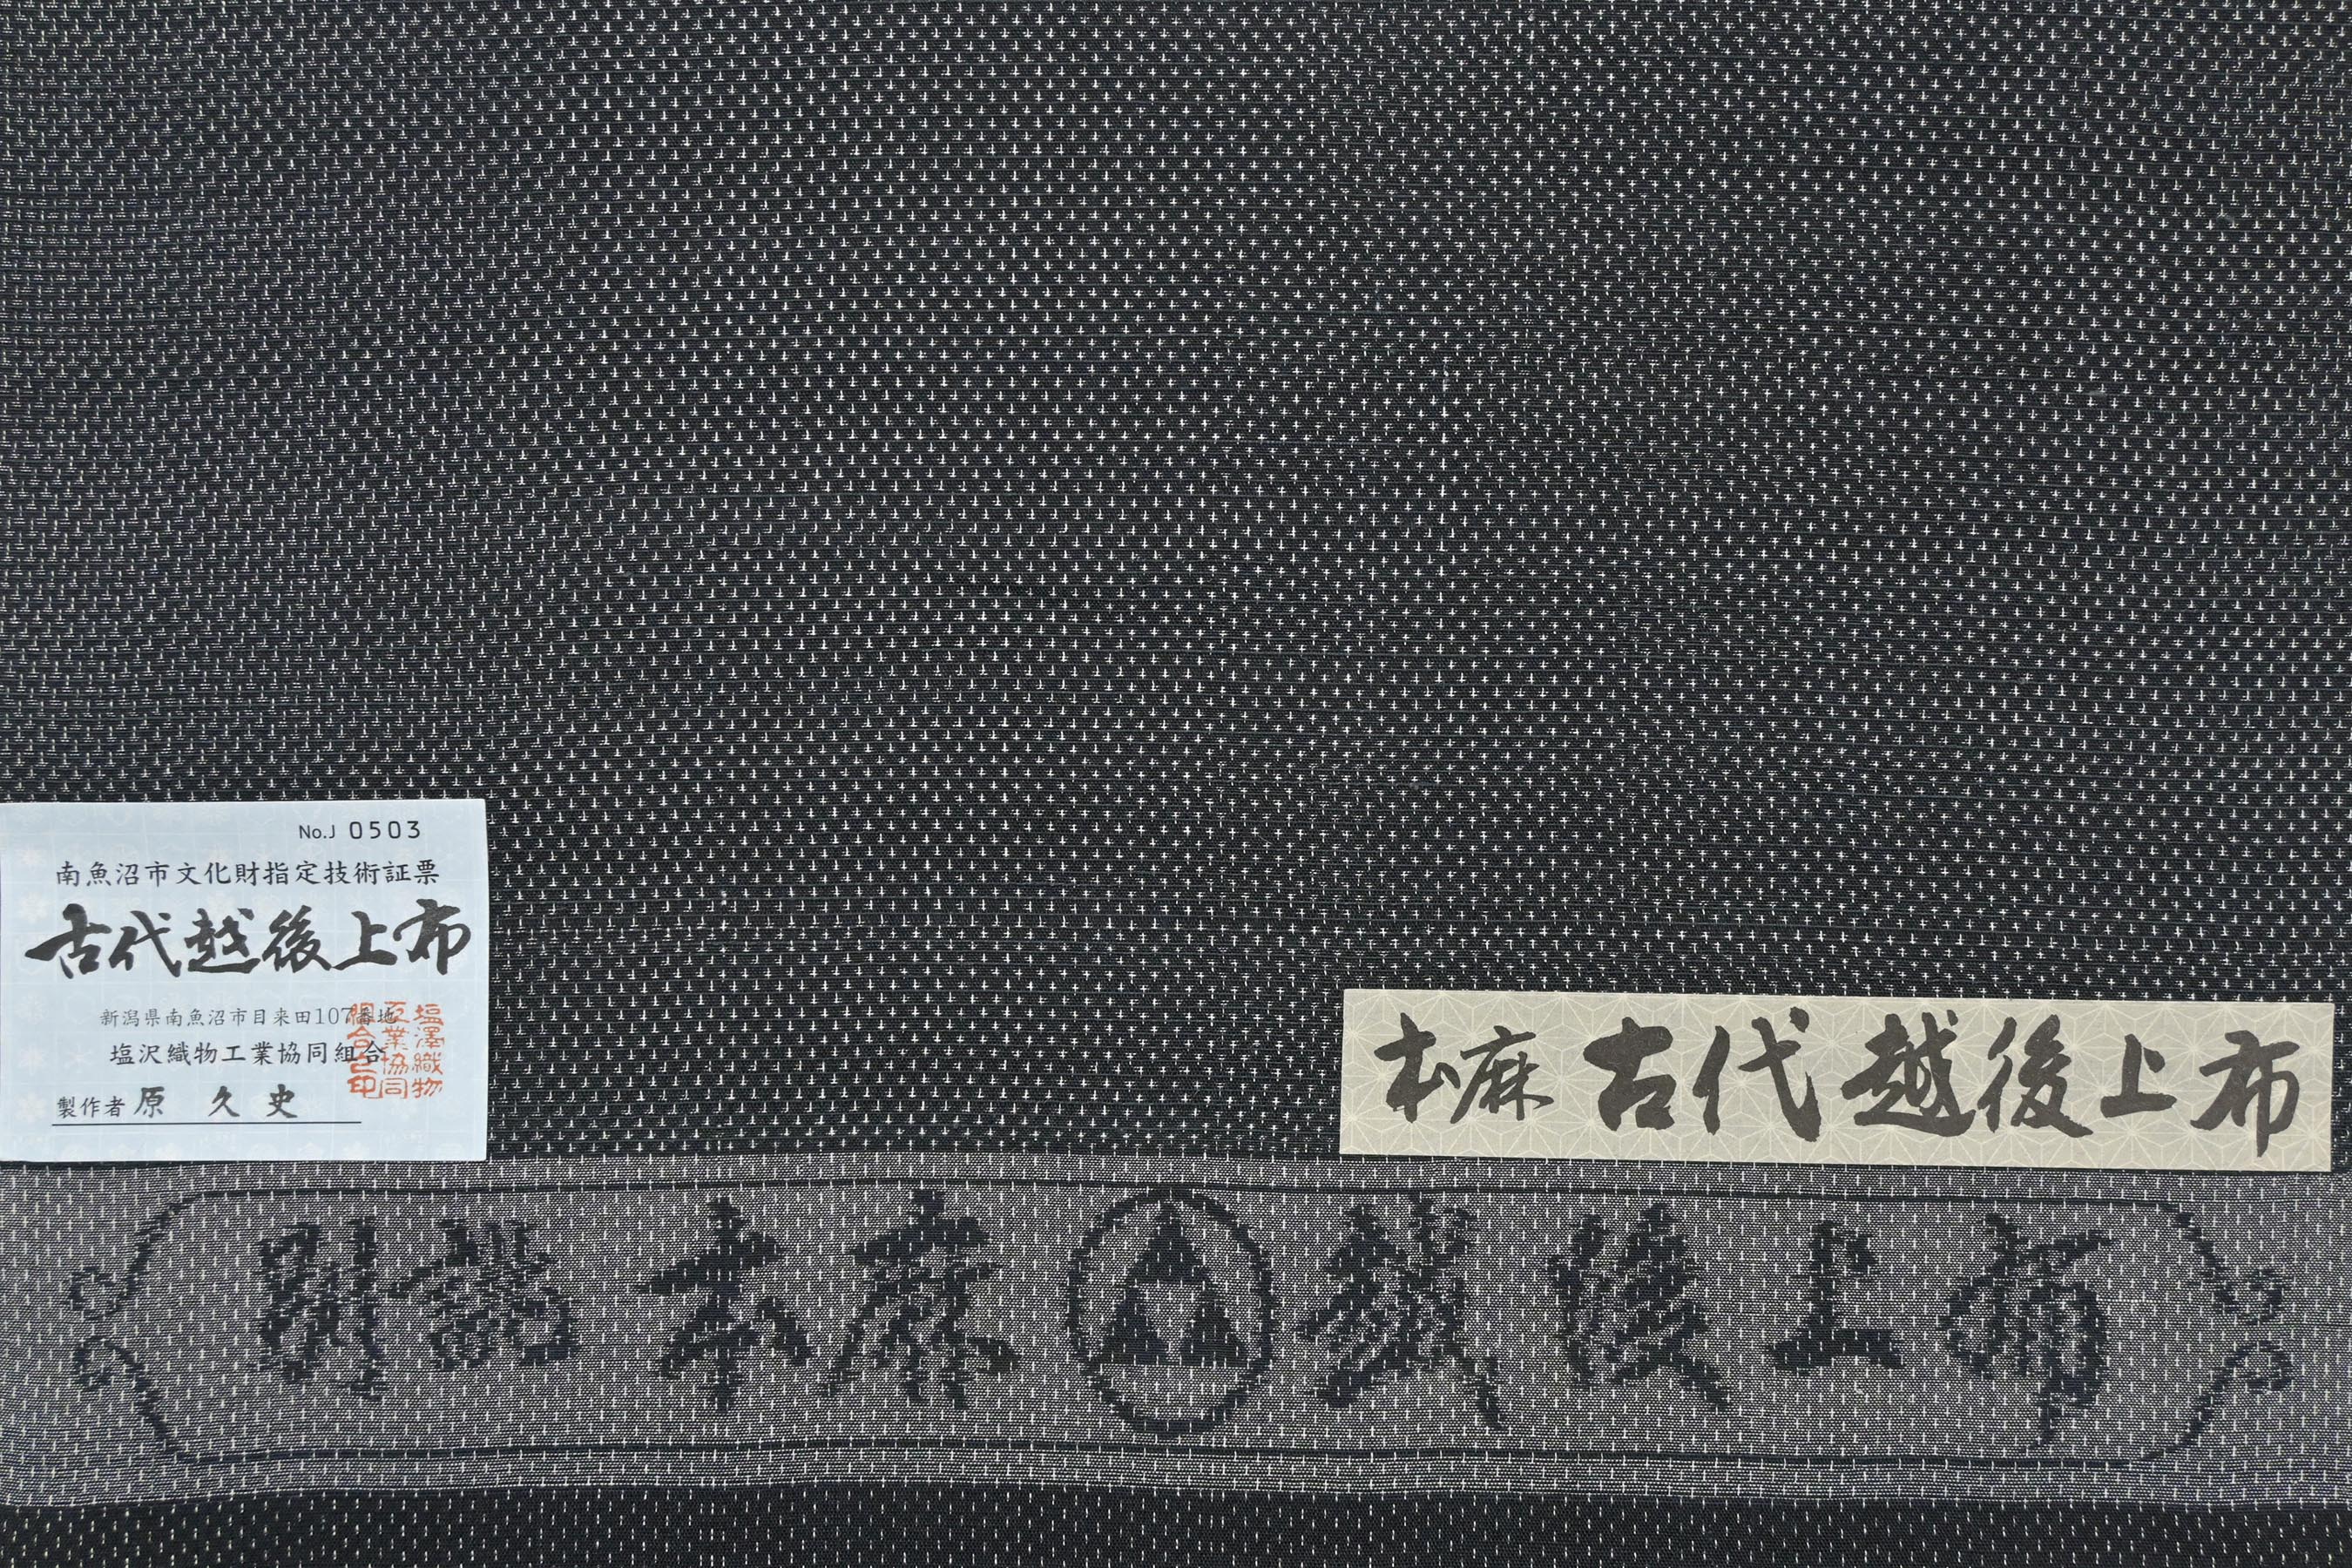 No.J 0503
南魚沼市文化財指定技術証票
古代越後上布
新潟県南魚沼市目来田107番地
塩沢織物工業協同組合
塩澤織物工業協同組合之印
製作者 原 久史
本麻 古代越後上布
別誂 本麻 越後上布